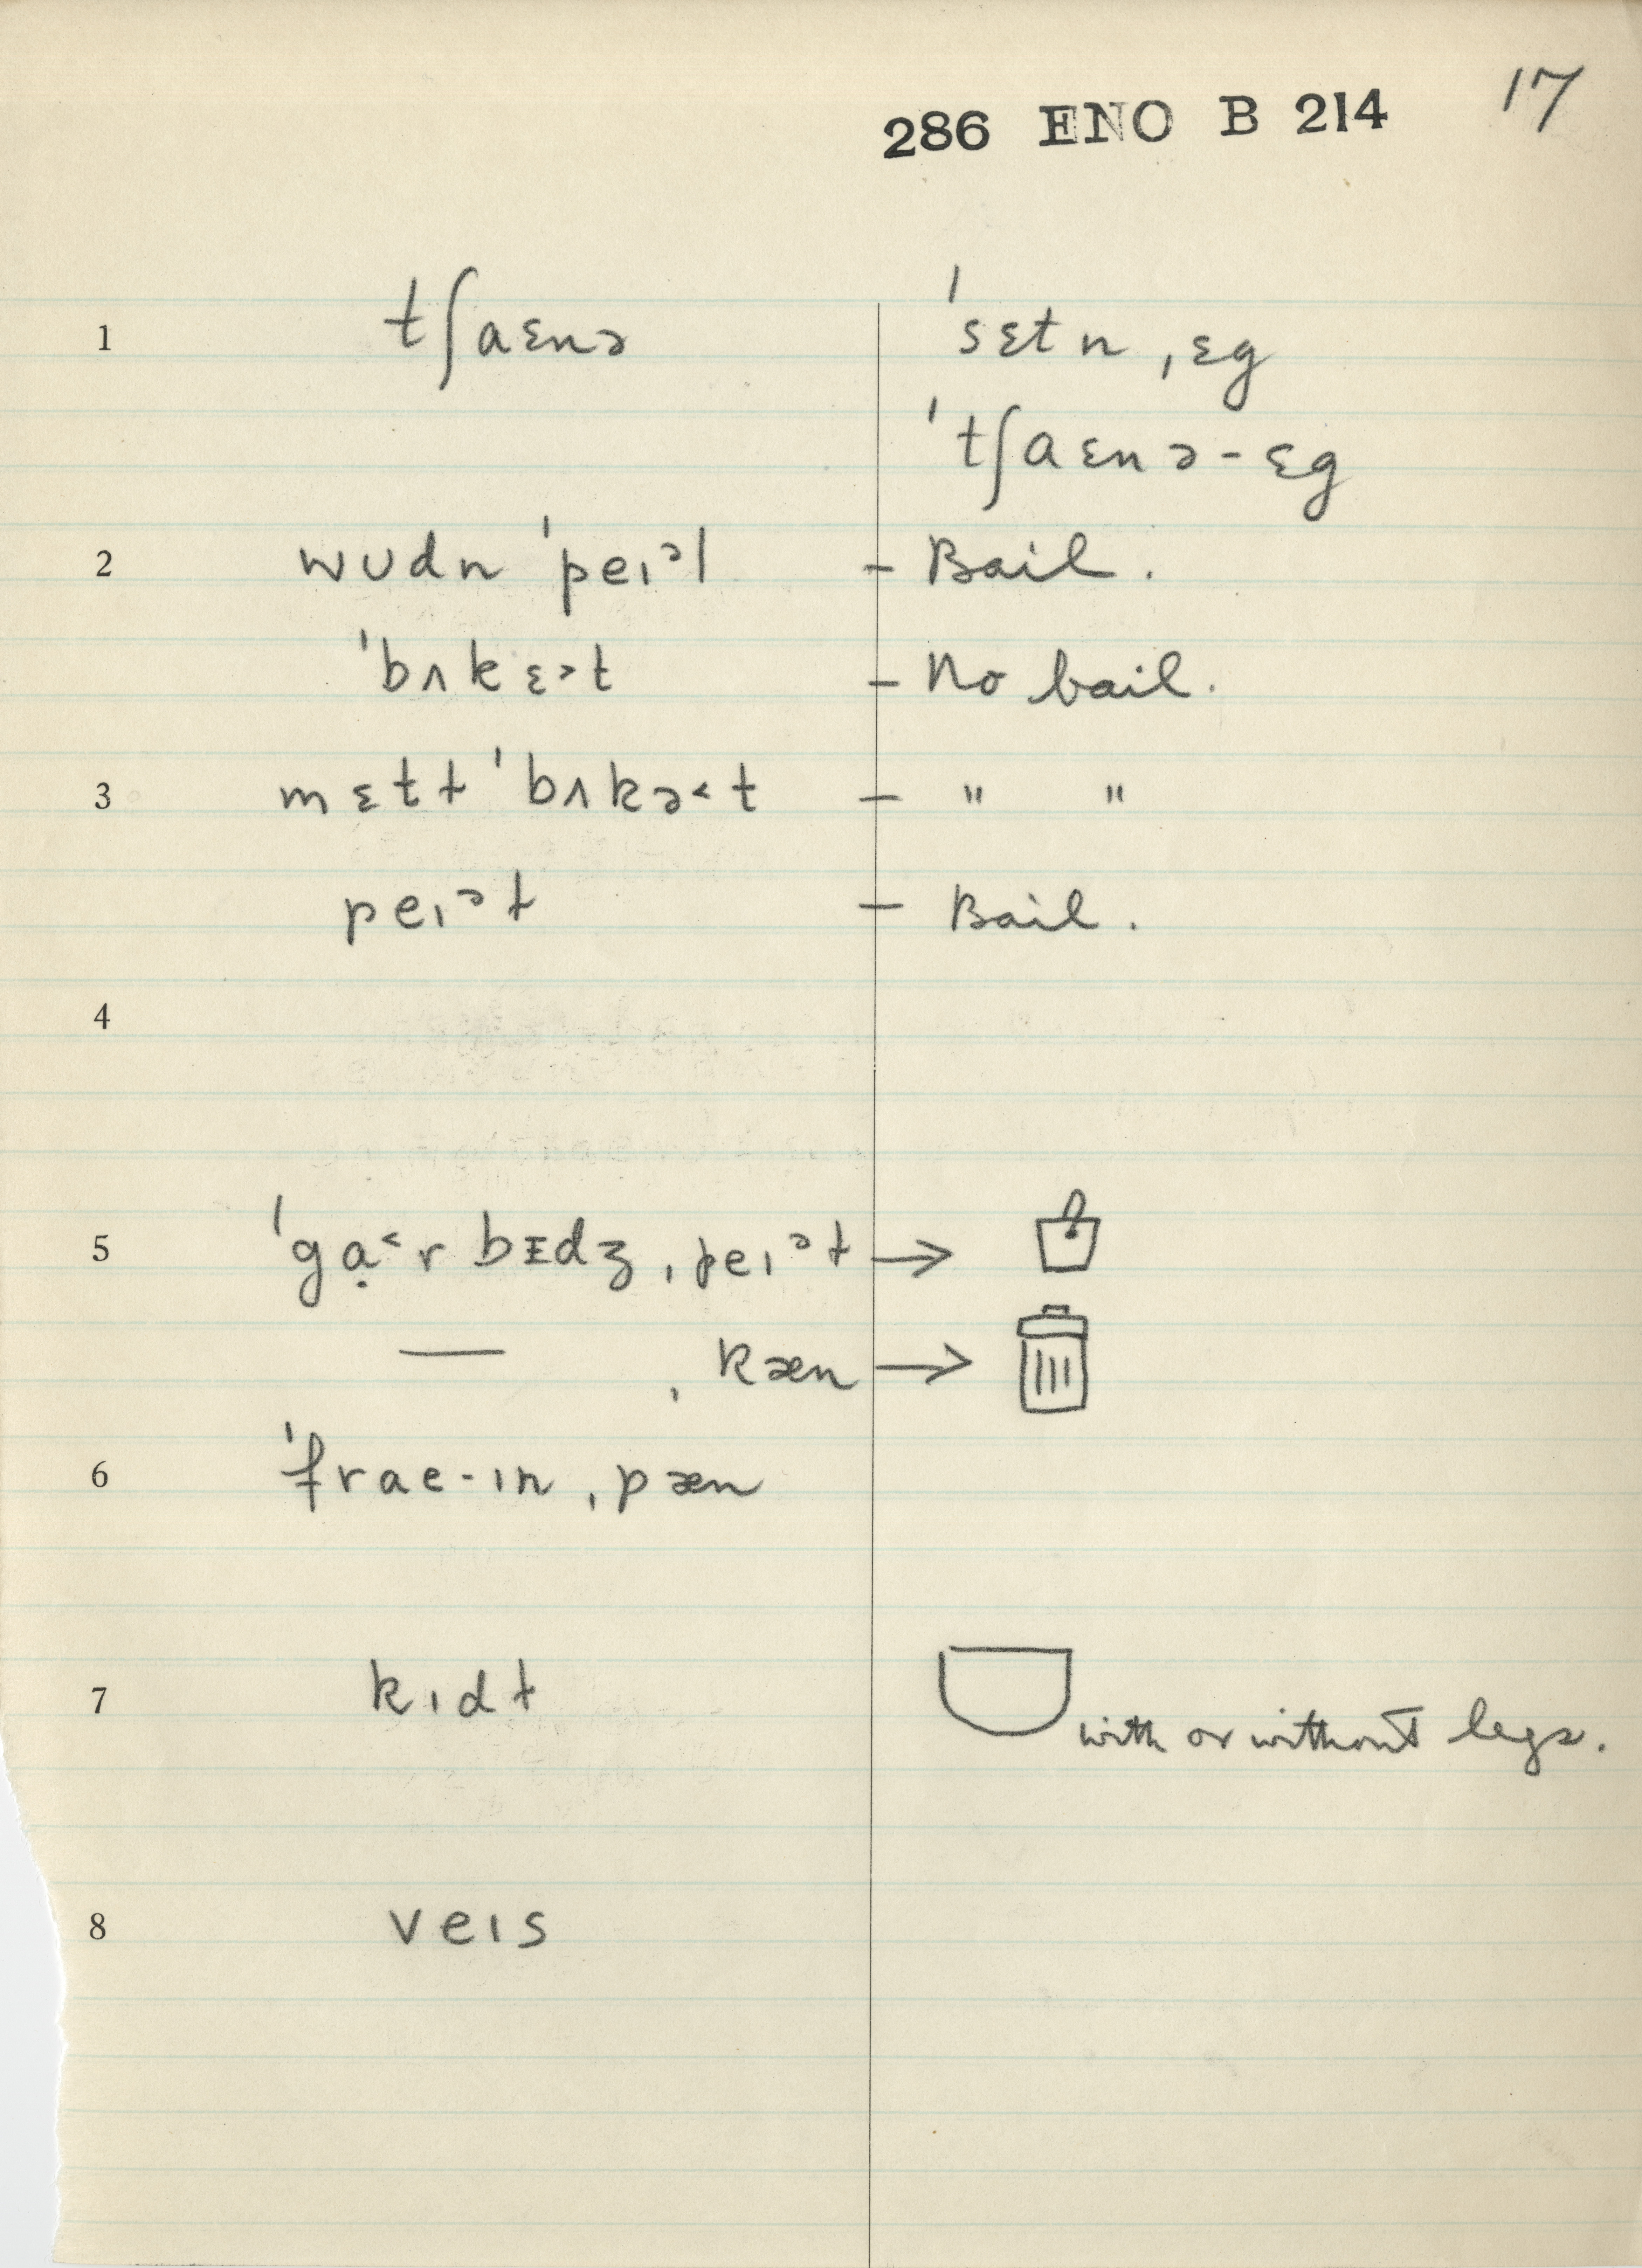 286 ENO B 214 17
1 tʃaɛnə ˈsɛtn ˌɛg
ˈtʃaɛnə-ɛg
2 wʊdn ˈpeɪᵊl – Bail.
ˈbʌkɛ˃t – No bail.
3 mɛtɫ ˈbʌkə˂t – " "
peɪᵊɫ – Bail.
4
5 ˈgɑ̣˂rbɪdʒ ˌpeɪᵊɫ →
— ˌkæn →
6 ˈfrae-ɪn ˌpæn
7 kɪdɫ with or without legs.
8 veɪs